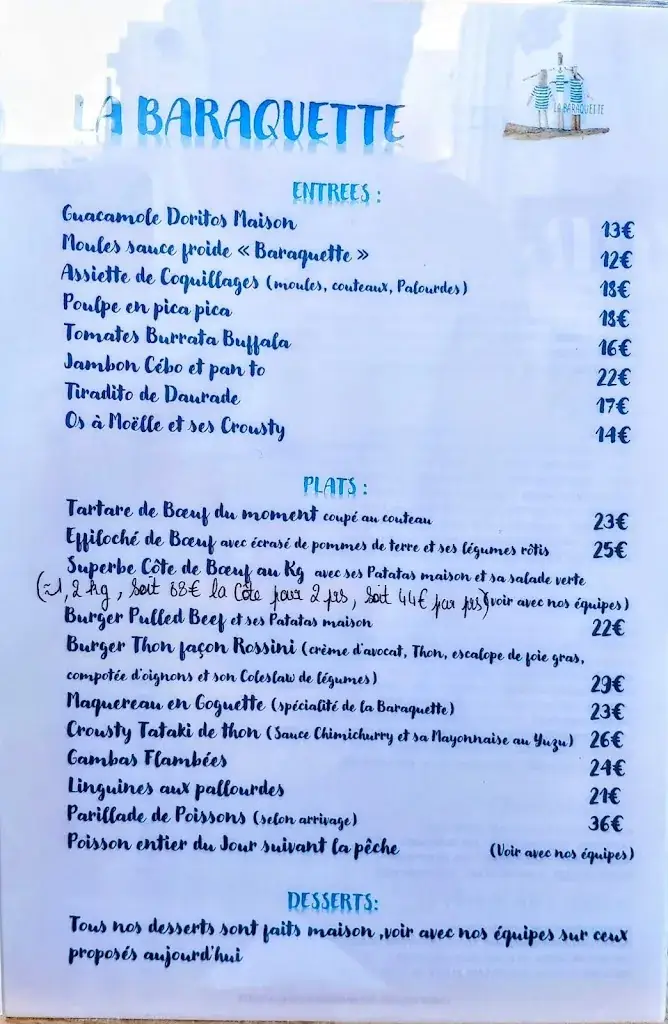 LA BARAQUETTE
LA BARAQUETTE
ENTREES :
Guacamole Doritos Maison 13€
Moules sauce froide « Baraquette » 12€
Assiette de Coquillages (moules, couteaux, Palourdes) 18€
Poulpe en pica pica 18€
Tomates Burrata Buffala 16€
Jambon Cébo et pan to 22€
Tiradito de Daurade 17€
Os à Moëlle et ses Crousty 14€
PLATS :
Tartare de Bœuf du moment coupé au couteau 23€
Effiloché de Bœuf avec écrasé de pommes de terre et ses légumes rôtis 25€
Superbe Côte de Bœuf au Kg avec ses Patatas maison et sa salade verte
(≈1,2 kg, soit 88€ la Côte pour 2 prs, soit 44€ par prs) voir avec nos équipes)
Burger Pulled Beef et ses Patatas maison 22€
Burger Thon façon Rossini (crème d'avocat, Thon, escalope de foie gras,
compotée d'oignons et son Coleslaw de légumes) 29€
Maquereau en Goguette (spécialité de la Baraquette) 23€
Crousty Tataki de thon (Sauce Chimichurry et sa Mayonnaise au Yuzu) 26€
Gambas Flambées 24€
Linguines aux pallourdes 21€
Parillade de Poissons (selon arrivage) 36€
Poisson entier du Jour suivant la pêche (Voir avec nos équipes)
DESSERTS:
Tous nos desserts sont faits maison ,voir avec nos équipes sur ceux
proposés aujourd'hui